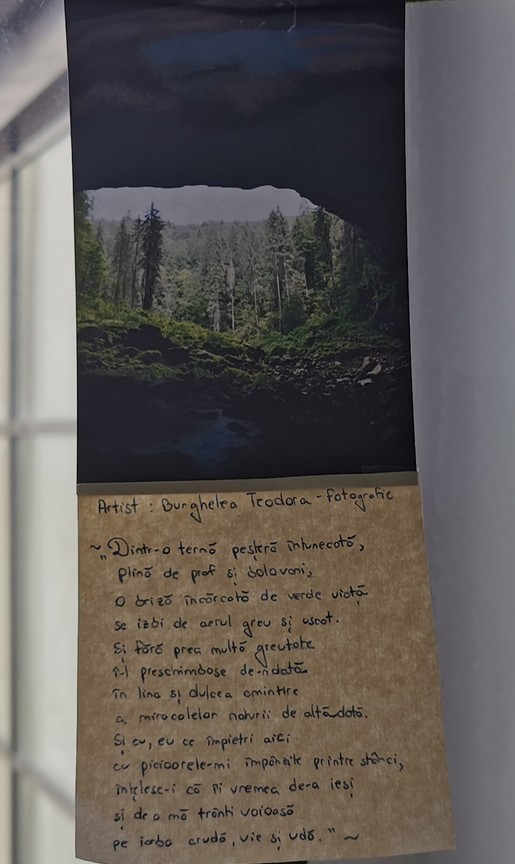 Artist : Burghelea Teodora - Fotografie
~ „Dintr-o ternă peșteră întunecată,
plină de praf și bolovani,
o briză încărcată de verde viață
se izbi de aerul greu și uscat.
Și fără prea multă greutate
i-l preschimbase de-ndată
în lina și dulcea amintire
a miracolelor naturii de altădată.
Și eu, eu ce împietri aici
cu picioarele-mi împânzite printre stânci,
înțelese-i că îi vremea de-a ieși
și de a mă trânti voioasă
pe iarba crudă, vie și udă." ~